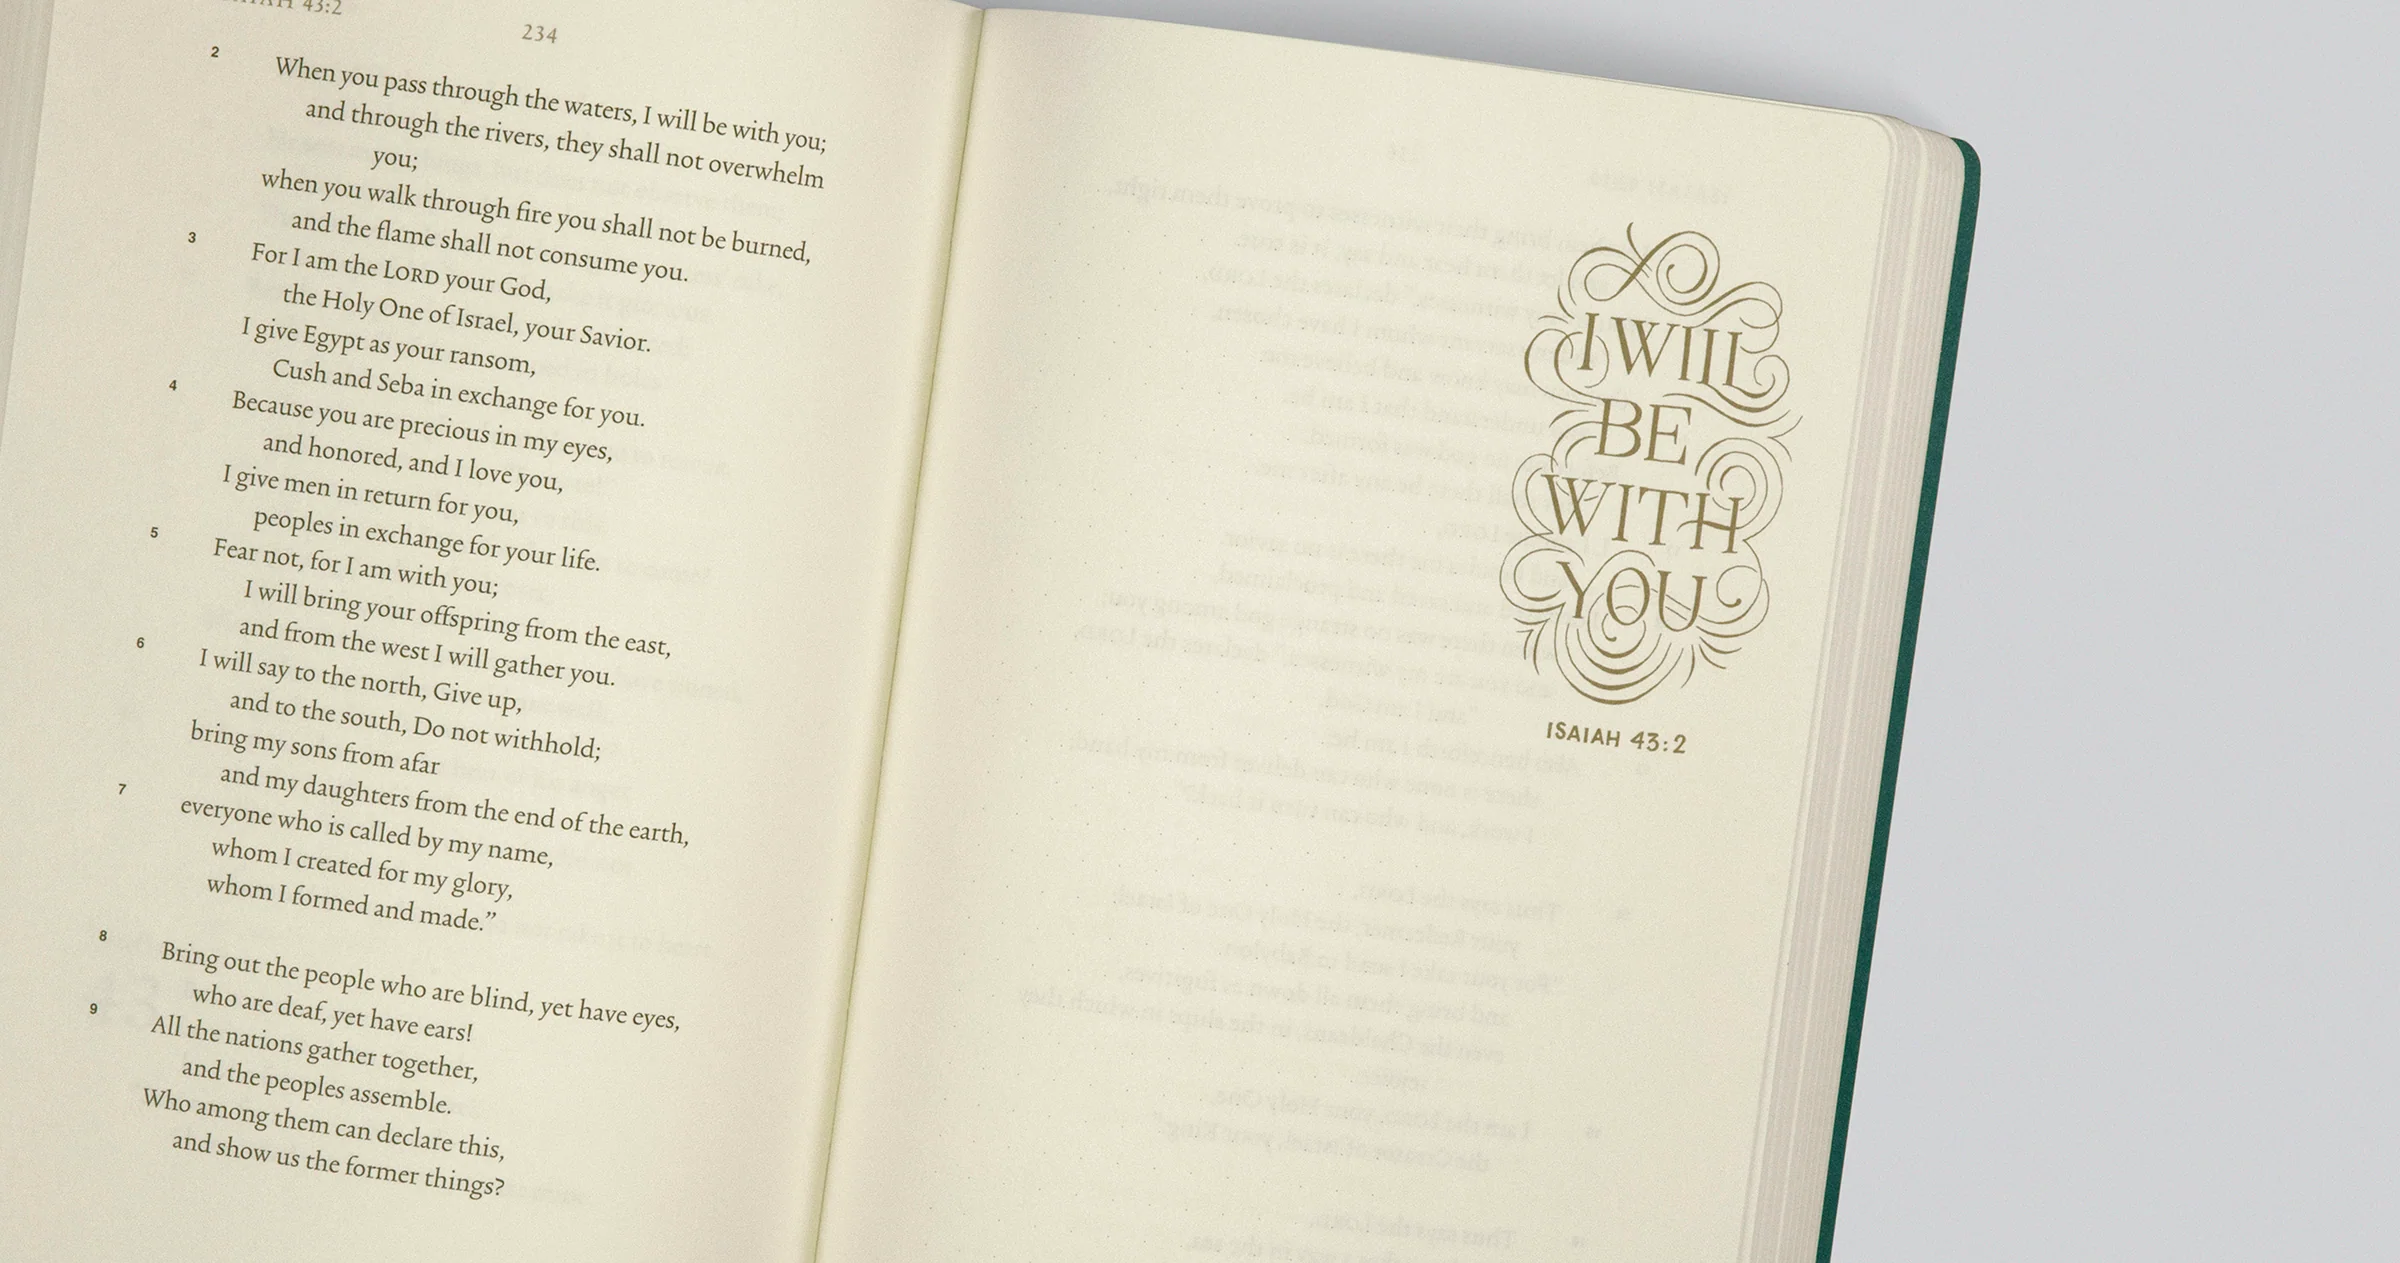 ISAIAH 43:2
234
2 When you pass through the waters, I will be with you;
and through the rivers, they shall not overwhelm
you;
when you walk through fire you shall not be burned,
and the flame shall not consume you.
3 For I am the LORD your God,
the Holy One of Israel, your Savior.
I give Egypt as your ransom,
Cush and Seba in exchange for you.
4 Because you are precious in my eyes,
and honored, and I love you,
I give men in return for you,
peoples in exchange for your life.
5 Fear not, for I am with you;
I will bring your offspring from the east,
and from the west I will gather you.
6 I will say to the north, Give up,
and to the south, Do not withhold;
bring my sons from afar
and my daughters from the end of the earth,
7 everyone who is called by my name,
whom I created for my glory,
whom I formed and made.”
8 Bring out the people who are blind, yet have eyes,
who are deaf, yet have ears!
9 All the nations gather together,
and the peoples assemble.
Who among them can declare this,
and show us the former things?
I WILL
BE
WITH
YOU
ISAIAH 43:2